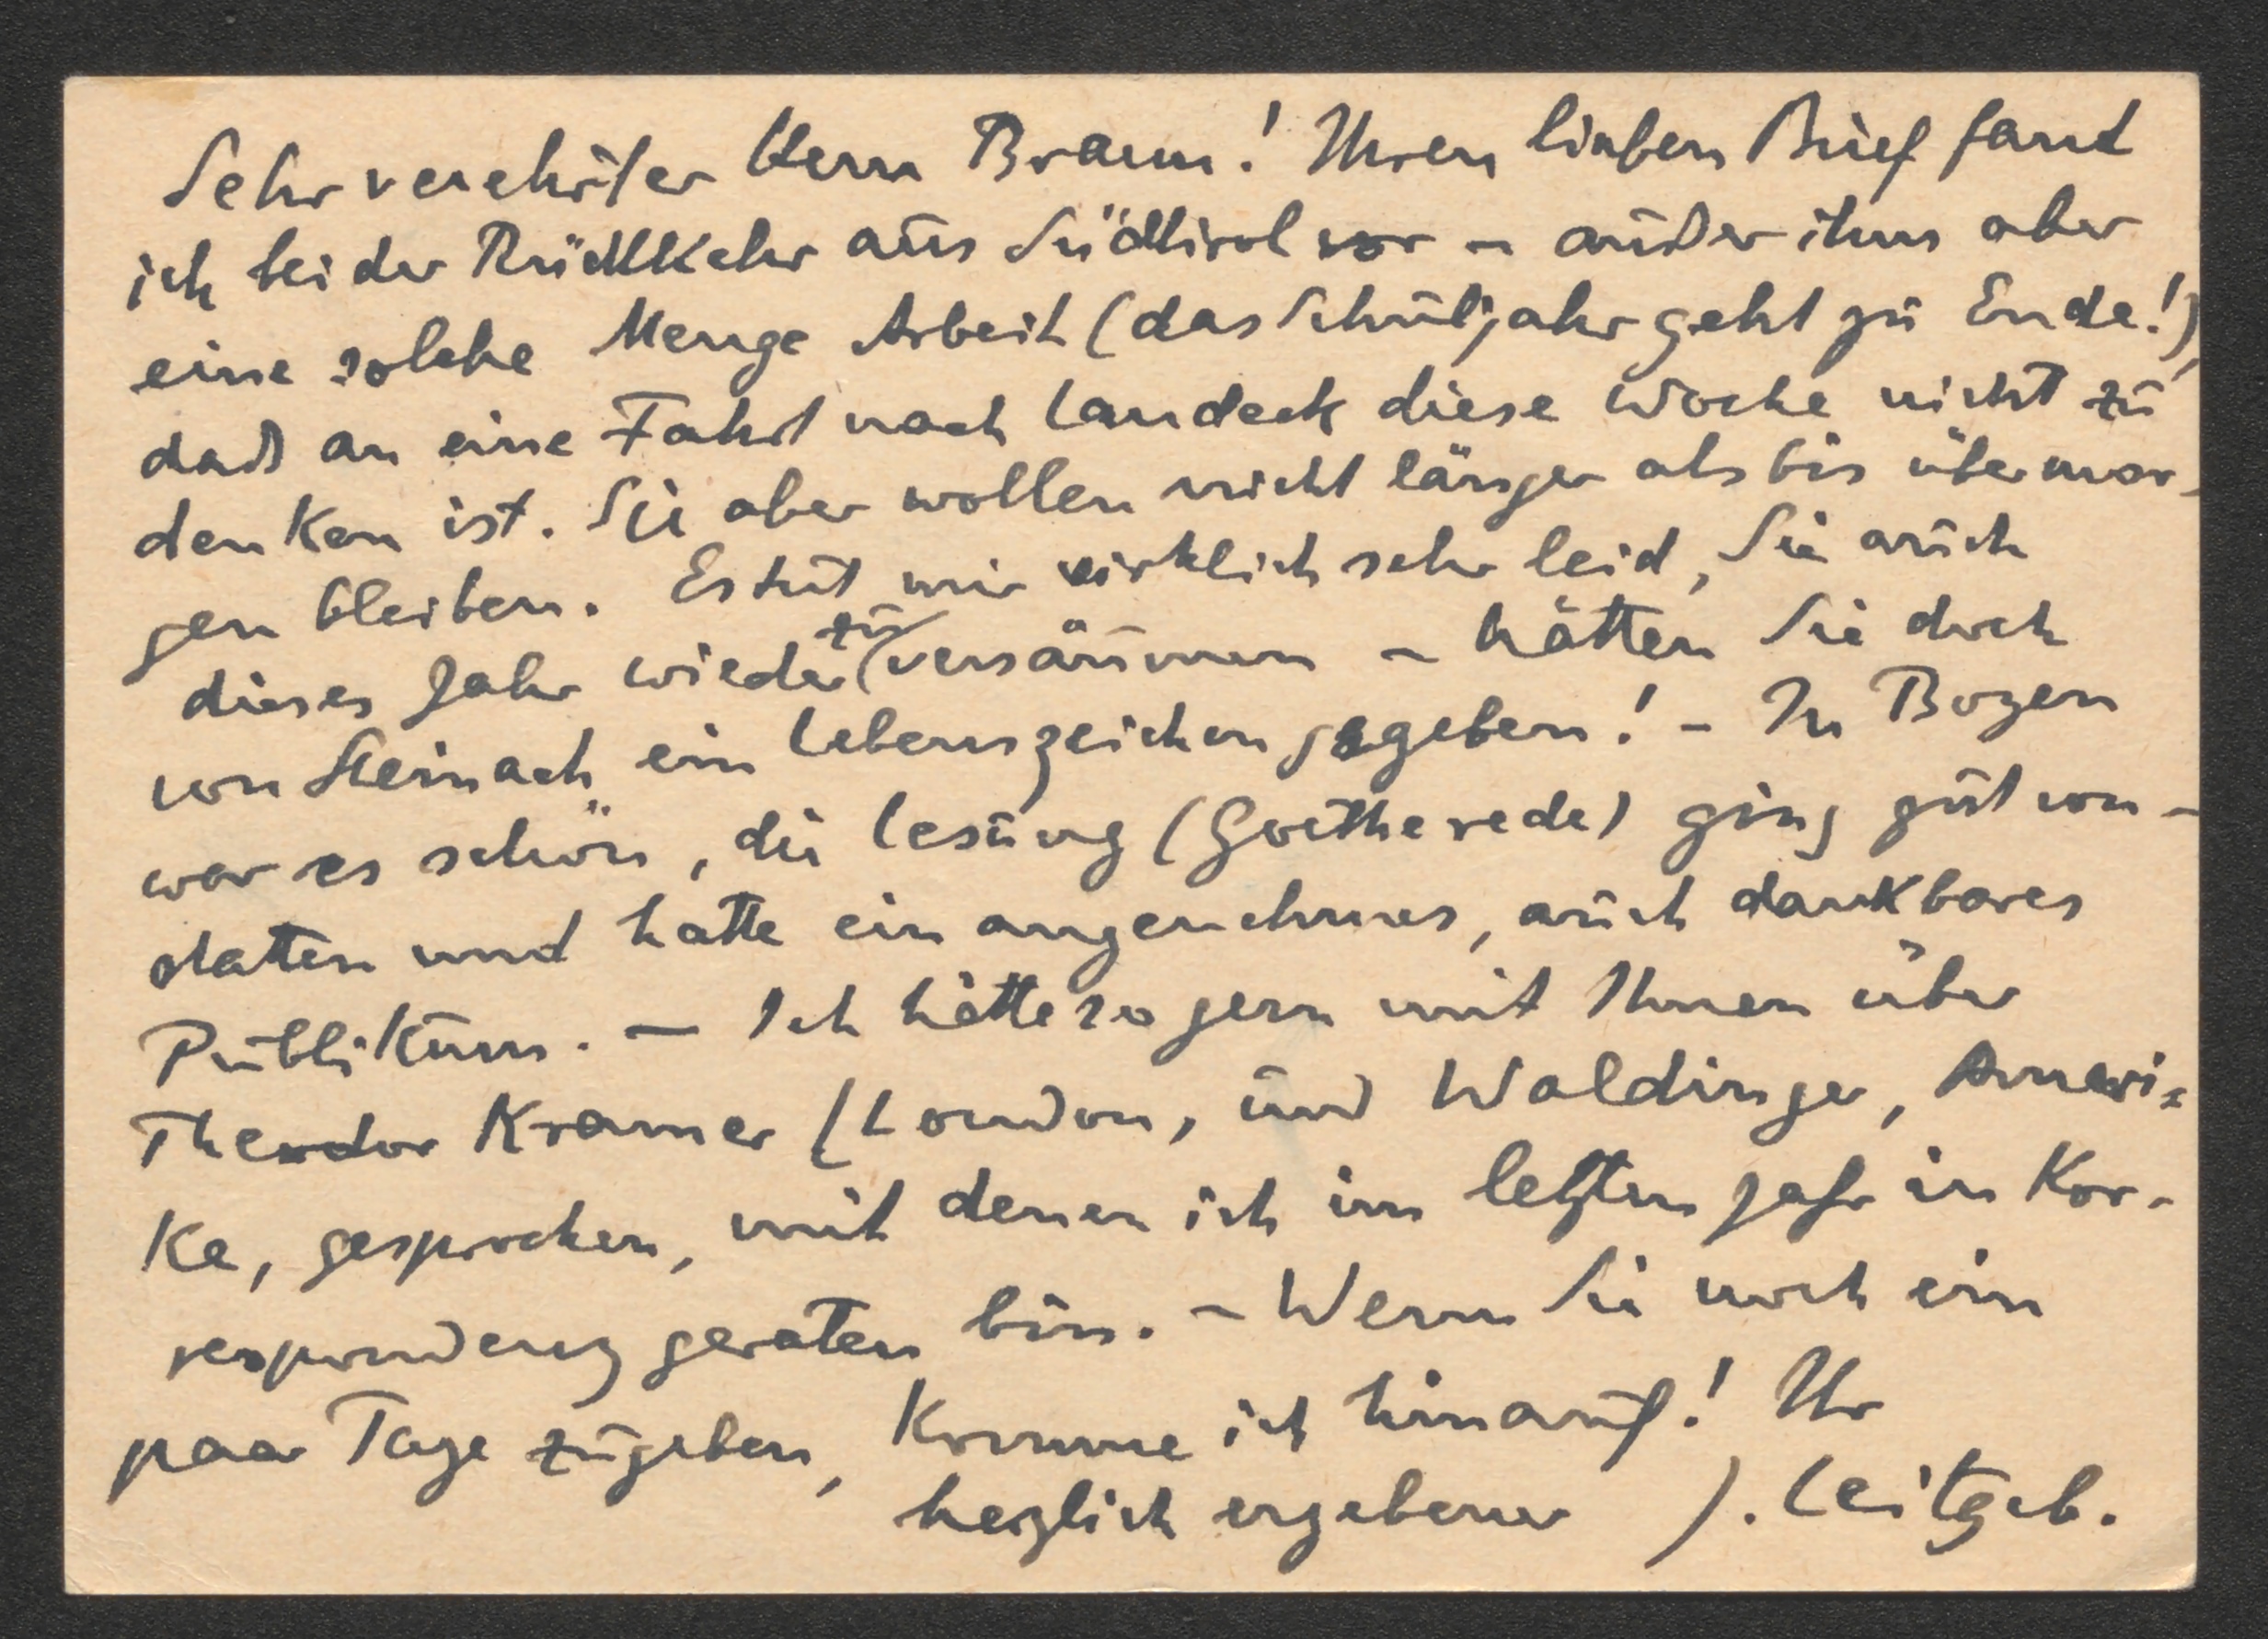 Sehr verehrter Herr Braun! Ihren lieben Brief fand
ich bei der Rückkehr aus Südtirol vor – außer ihm aber
eine solche Menge Arbeit (das Schuljahr geht zu Ende!),
daß an eine Fahrt nach Landeck diese Woche nicht zu
denken ist. Sie aber wollen nicht länger als bis übermor-
gen bleiben. Es tut mir wirklich sehr leid, Sie auch
dieses Jahr wieder zu versäumen – hätten Sie doch
von Steinach ein Lebenszeichen gegeben! – In Bozen
war es schön, die Lesung (Goetherede) ging gut von-
statten und hatte ein angenehmes, auch dankbares
Publikum. – Ich hätte so gern mit Ihnen über
Theodor Kramer (London, und Waldinger, Ameri-
ka, gesprochen, mit denen ich im letzten Jahr in Kor-
respondenz geraten bin. – Wenn Sie noch ein
paar Tage zugeben, komme ich hinauf! Ihr
herzlich ergebener J. Leitgeb.